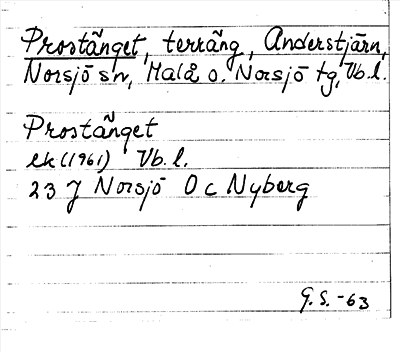 Prostänget, terräng, Anderstjärn,
Norsjö sn, Malå o. Norsjö tg, Vb.l.
Prostänget
ek (1961) Vb.l.
23 J Norsjö Oc Nyberg
G.S.-63